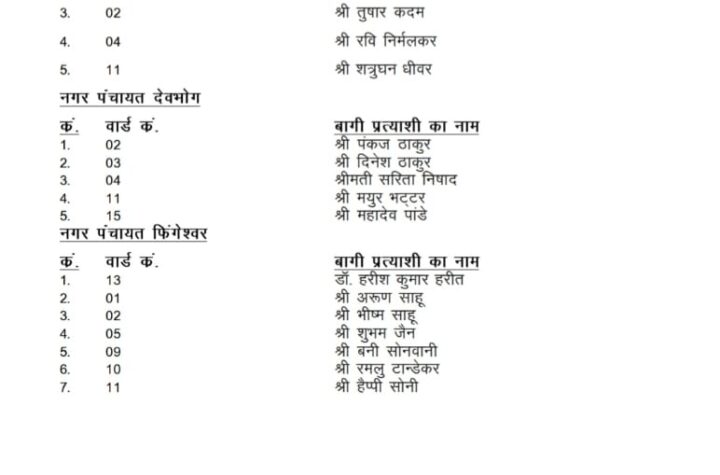 3. 02 श्री तुषार कदम
4. 04 श्री रवि निर्मलकर
5. 11 श्री शत्रुघन धीवर
नगर पंचायत देवभोग
कं. वार्ड कं. बागी प्रत्याशी का नाम
1. 02 श्री पंकज ठाकुर
2. 03 श्री दिनेश ठाकुर
3. 04 श्रीमती सरिता निषाद
4. 11 श्री मयुर भट्टर
5. 15 श्री महादेव पांडे
नगर पंचायत फिंगेश्वर
कं. वार्ड कं. बागी प्रत्याशी का नाम
1. 13 डॉ. हरीश कुमार हरीत
2. 01 श्री अरूण साहू
3. 02 श्री भीष्म साहू
4. 05 श्री शुभम जैन
5. 09 श्री बनी सोनवानी
6. 10 श्री रमलु टान्डेकर
7. 11 श्री हैप्पी सोनी